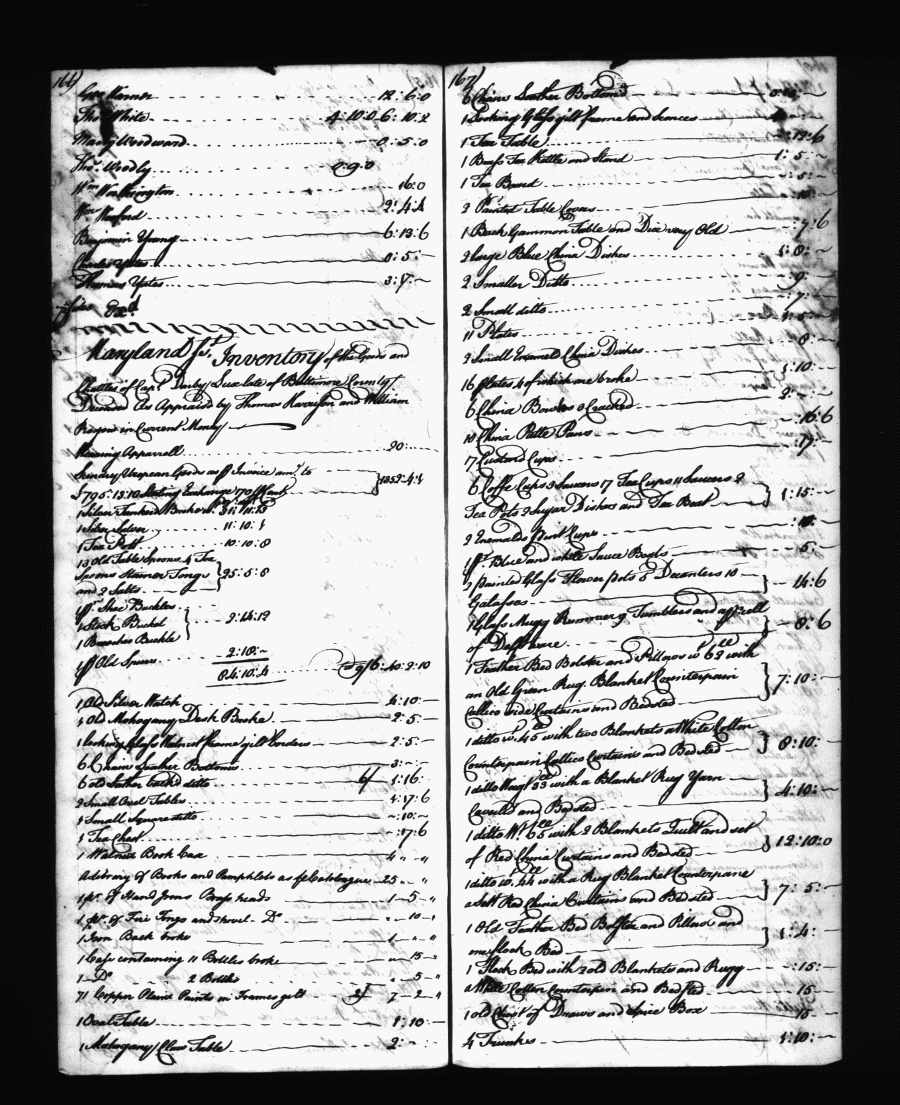 166)
Geo Warner 12:6:0
Thos White 4:10:0 6:10:2
Mary Woodward 0:5:0
Thos Woodly 0 9 0
Wm Worthington 16:0
Wm Wexford 2:4:4
Benjamin Young 6:13:6
Yates 0:5:
Thomas Yates 3:7:
7 sides Exd
Maryland Js. Inventory of the Goods and
Chattles of Capt Darby Lux late of Baltimore County
Deceased As Appraised by Thomas Harrison and William
Rogers in Current Money
Wearing Apparrell 20:
Sundry Uropean Goods as Pr Invoice amt. to
£795:13:10 Sterling Exchange 170 Pr Cent } 1352:4:4
1 Silver Tankerd
1 Silver Salver 11:10:
1 Tea Pott 10:10:8
13 Old Table Spoons 4 Tea
Spoons Tongs
and 2 Salts } 25:5:8
1 pr. Shoe Buckles
1 Stock Buckel
1 Breeches Buckle } 2:14:12
1 pr Old Spurs 2:18:
84:10:4
1 Old Silver Watch 4:10:
1 Old Mohogany Desk Broke 2:5:
1 looking Glass Walnut frame gilt borders 2:5:
6 Chairs Leather Bottoms 3:
6 old Lather back'd ditto 6/ 1:16:
2 Small Oval Tables 1:17:6
1 Small Square ditto 10:
1 Tea Chest 17:6
1 Walnut Book Case 4 " "
A Library of Books and Pamphlets as Pr Catologue 25 " "
1 pr. of Hand Irons Brass heads 1 5 "
1 pr. of Fire Tongs and shovel Do. " 10 "
1 Iron Back broke 1 " "
1 Case containing 11 Bottles broke " 15 "
1 Do. 2 Bottles " 5 "
71 Copper Plaine Prints in Frames gilt 2/ 7 2 "
1 Oval Table 1:10
1 Mohogany Claw Table 2:
167)
6 Chairs Leather Bottoms
1 Looking Glass gilt frame and Sconces
1 Tea Table :12:6
1 Brass Tea Kettle and Stand 1:5:
1 Tea Board :5:
2 Painted Table Covers :10:
1 Back Gammon Table and Dice very Old :7:6
2 large Blue China Dishes 1:8:
2 Smaller Ditto 9:
2 Small ditto :7:
11 Plates
2 Small Enamel China Dishes :8:
16 plates 4 of which are broke 1:10:
6 China Bowles 2 Cracked 2:
10 China Patte Pans :16:6
17 Custard Cups :17:
6 Coffe Cups 3 Saucers 17 Tea Cups 11 Saucers 2
Tea Pots 2 Sugar Dishes and Tea Boat } 1:15:
2 Enameld Cups :10:
1 pr. Blue and white Sauce Boats :5:
2 painted Glass Flower pots 5 Decanters 10
Galasses } :14:6
1 Glass Mugg Rummer 9 Tumblers and a
of Delft ware } :8:6
1 Feather Bed Bolster and Pillows wt. 62 with
an Old Green Rug Blanket Counterpain
Callico side Curtains and Bedsted } 7:10:
1 ditto wt. 45 with two Blankets a White Cotton
Counterpain Callico Curtains and Bedsted } 8:10:
1 ditto Weigt 53 with a Blanket Rug Yarn
Coverlid and Bedsted } 4:10:
1 ditto Wt. 65 with 2 Blankets Quilt and set
of Red China Curtains and Bedsted } 12:10:0
1 ditto wt. 44 with a Rug Blanket Counterpane
a sett Red China Curtains and Bedsted } 7:5:
1 Old Feather Bed Bolster and Pillows and
one flock Bed } 1:4:
1 Flock Bed with 2 old Blankets and Rugg :15:
a White Cotton Counterpin and Bedsted :15
1 old Chest of Draws and Spice Box 15
4 Trunks 1:10: